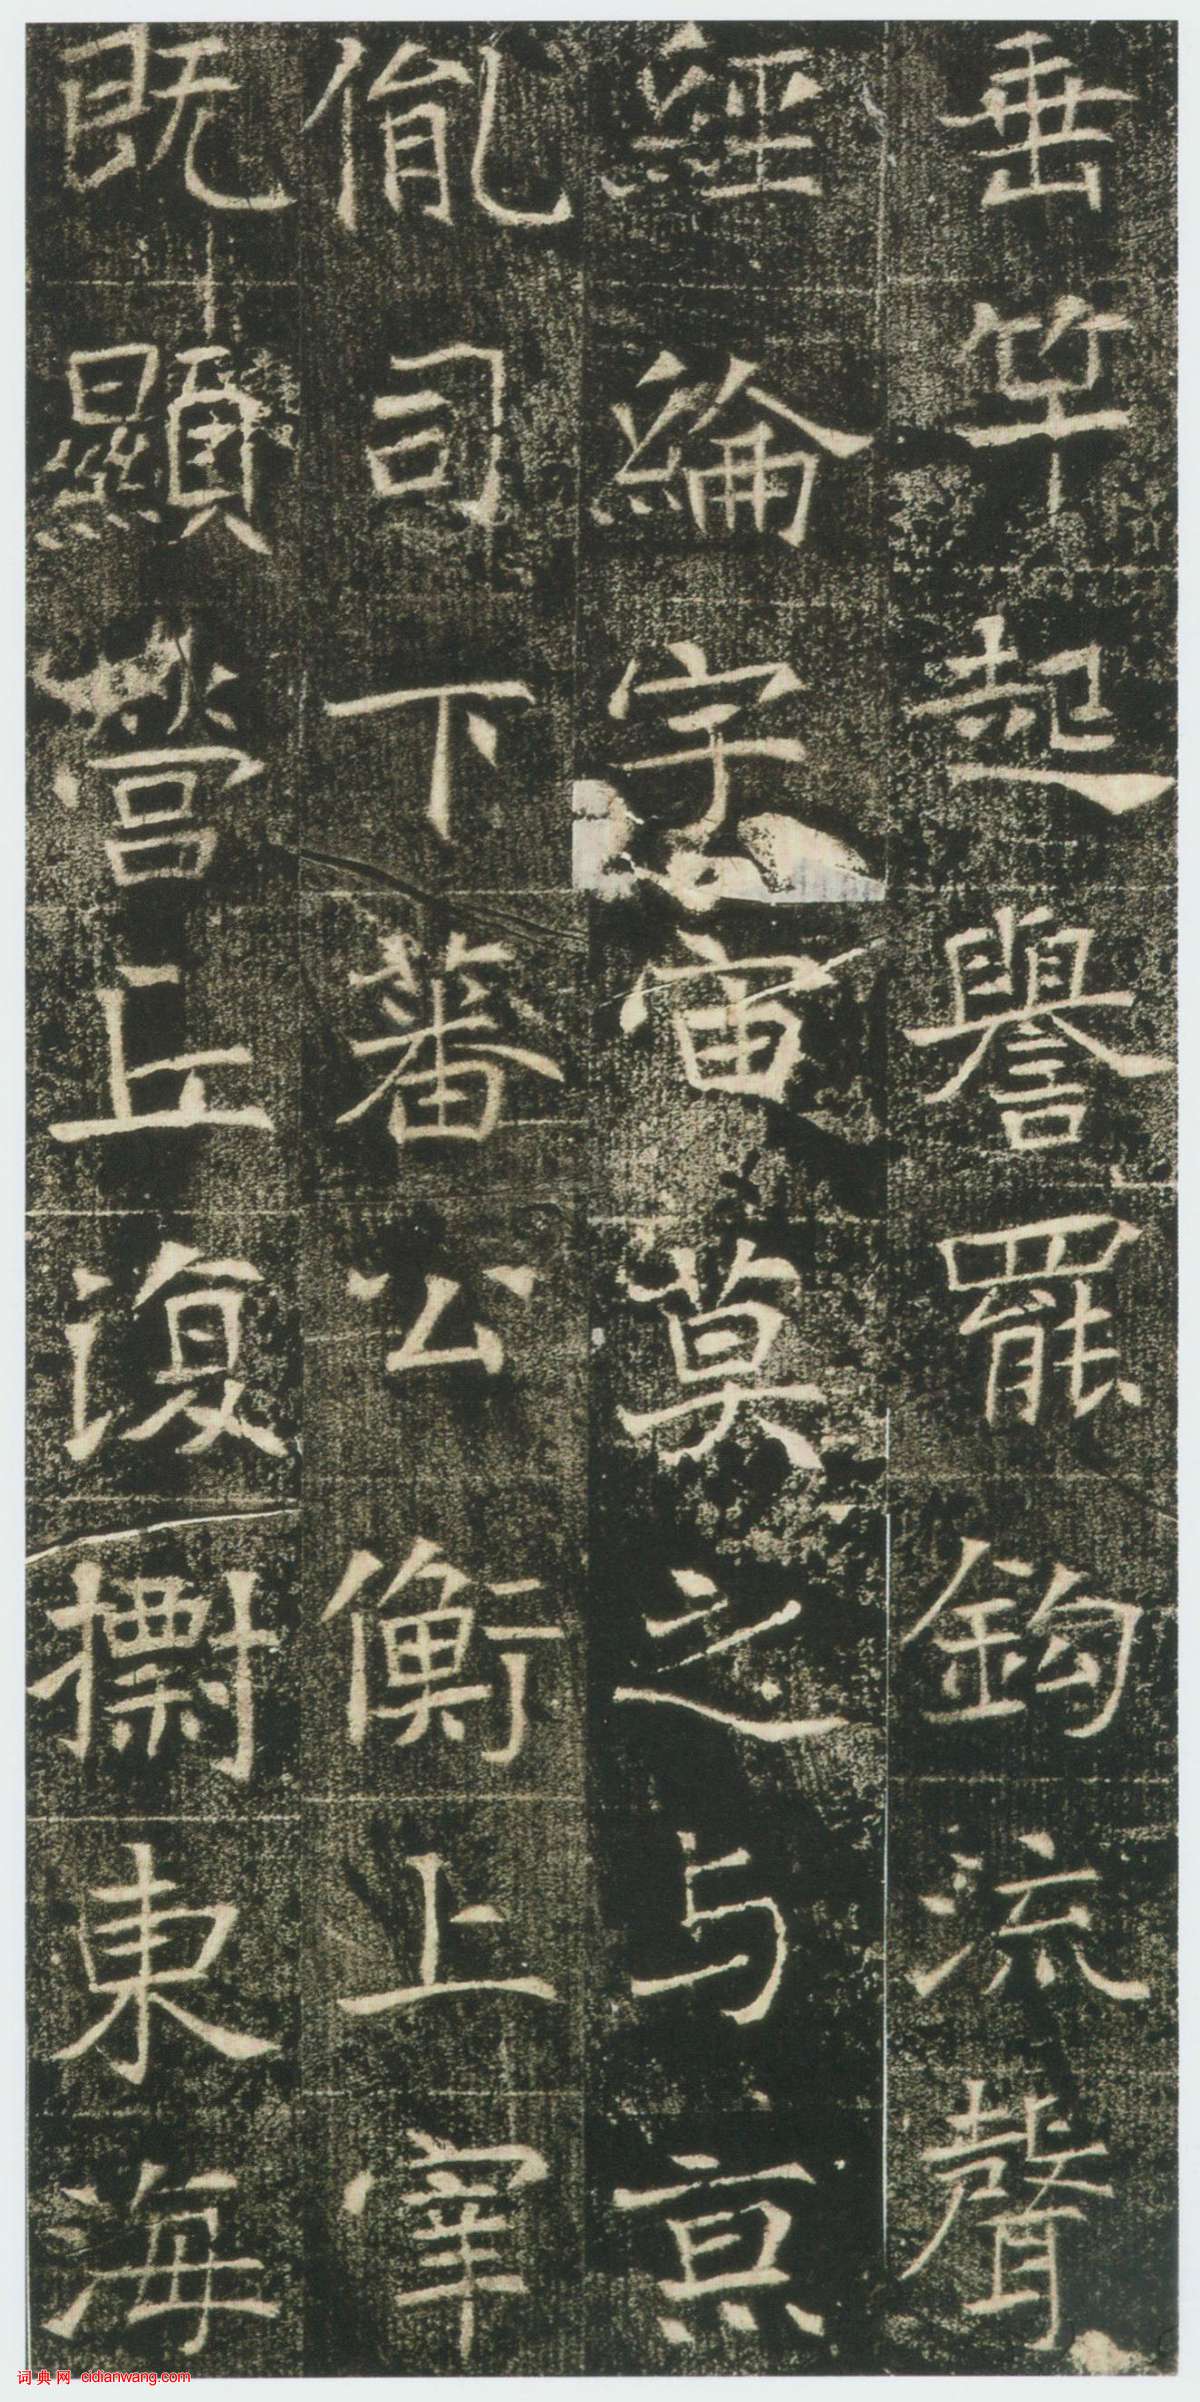 垂竿起譽罷鈎流聲
經綸宇宙莫之与京
胤司下蕃公衡上宰
既顯營丘復摽東海
词典网 cidianwang.com